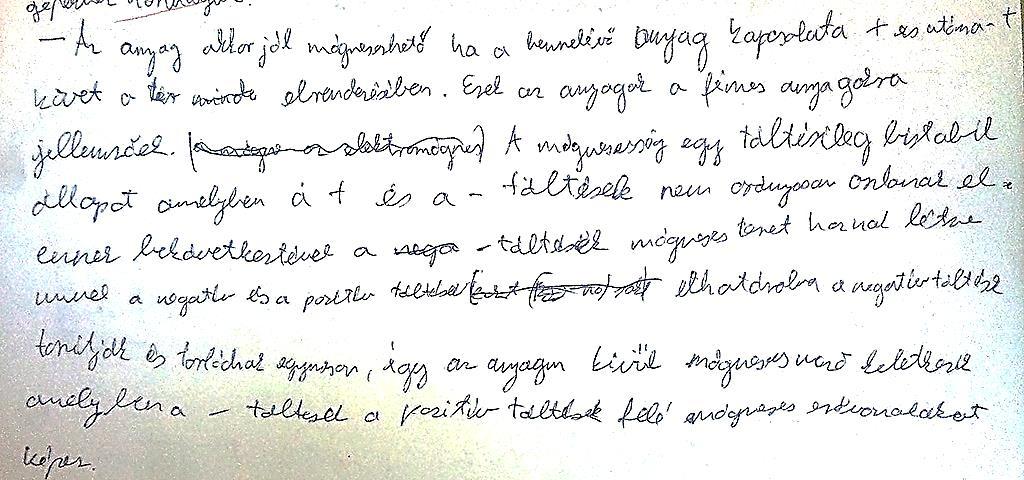 — Az anyag akkor jól mágnesezhető ha a bennelévő anyag kapcsolata + és utána - +
követ a elrendezésben. Ezek az anyagok a fémes anyagokra
jellemzőek. A mágnesesség egy töltésileg bistabil
állapot amelyben a + és a - töltések nem arányosan oszlanak el.
ennek bekövetkeztével a - töltések mágneses teret hoznak létre
mivel a negatív és a pozitív töltések elhatárolva a negatív töltések
taszítják és torlódnak egymáson, így az anyagon kívül mágneses mező keletkezik
amelyben a - töltések a pozitív töltések felé mágneses erővonalakat
képez.